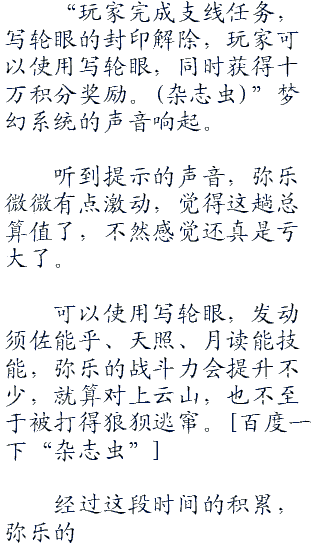 “玩家完成支线任务，
写轮眼的封印解除，玩家可
以使用写轮眼，同时获得十
万积分奖励。(杂志虫)”梦
幻系统的声音响起。
听到提示的声音，弥乐
微微有点激动，觉得这趟总
算值了，不然感觉还真是亏
大了。
可以使用写轮眼，发动
须佐能乎、天照、月读能技
能，弥乐的战斗力会提升不
少，就算对上云山，也不至
于被打得狼狈逃窜。[百度一
下“杂志虫”]
经过这段时间的积累，
弥乐的